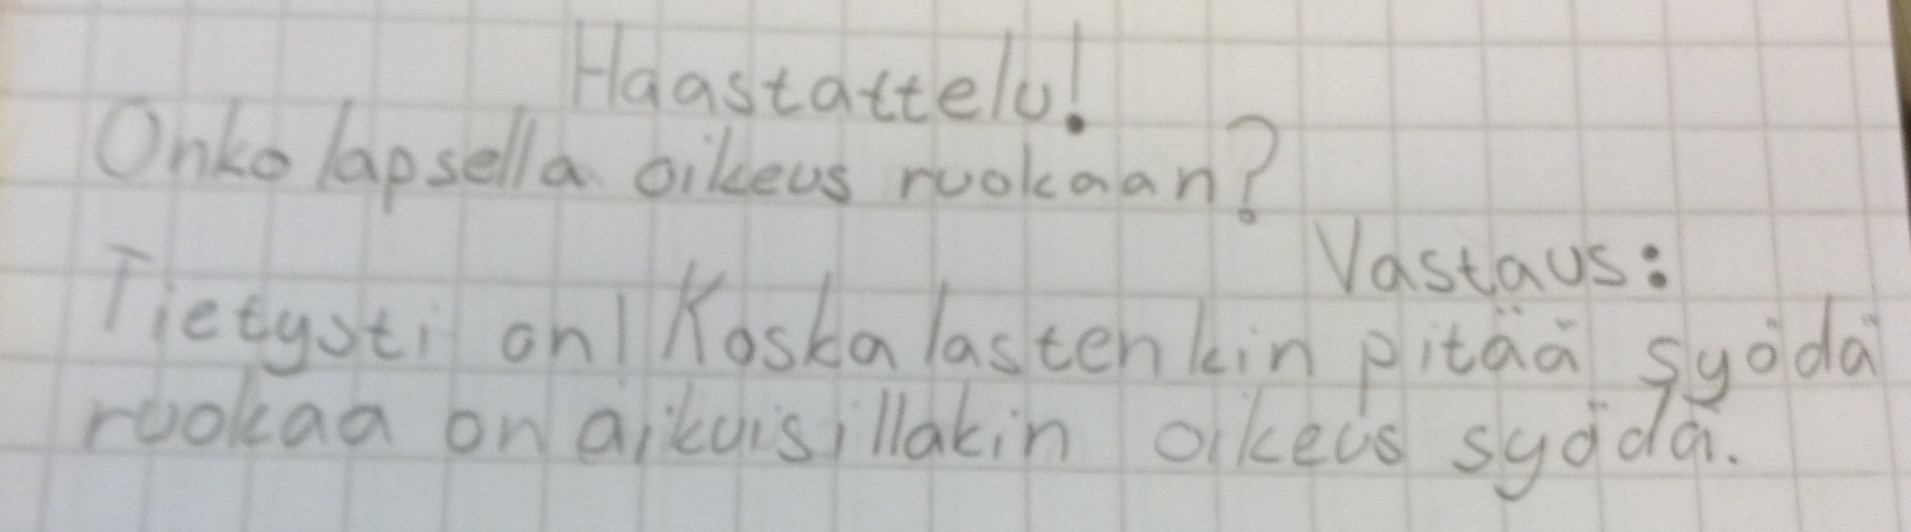 Haastattelu!
Onko lapsella oikeus ruokaan?
Vastaus:
Tietysti on! Koska lastenkin pitää syödä
ruokaa on aikuisillakin oikeus syödä.